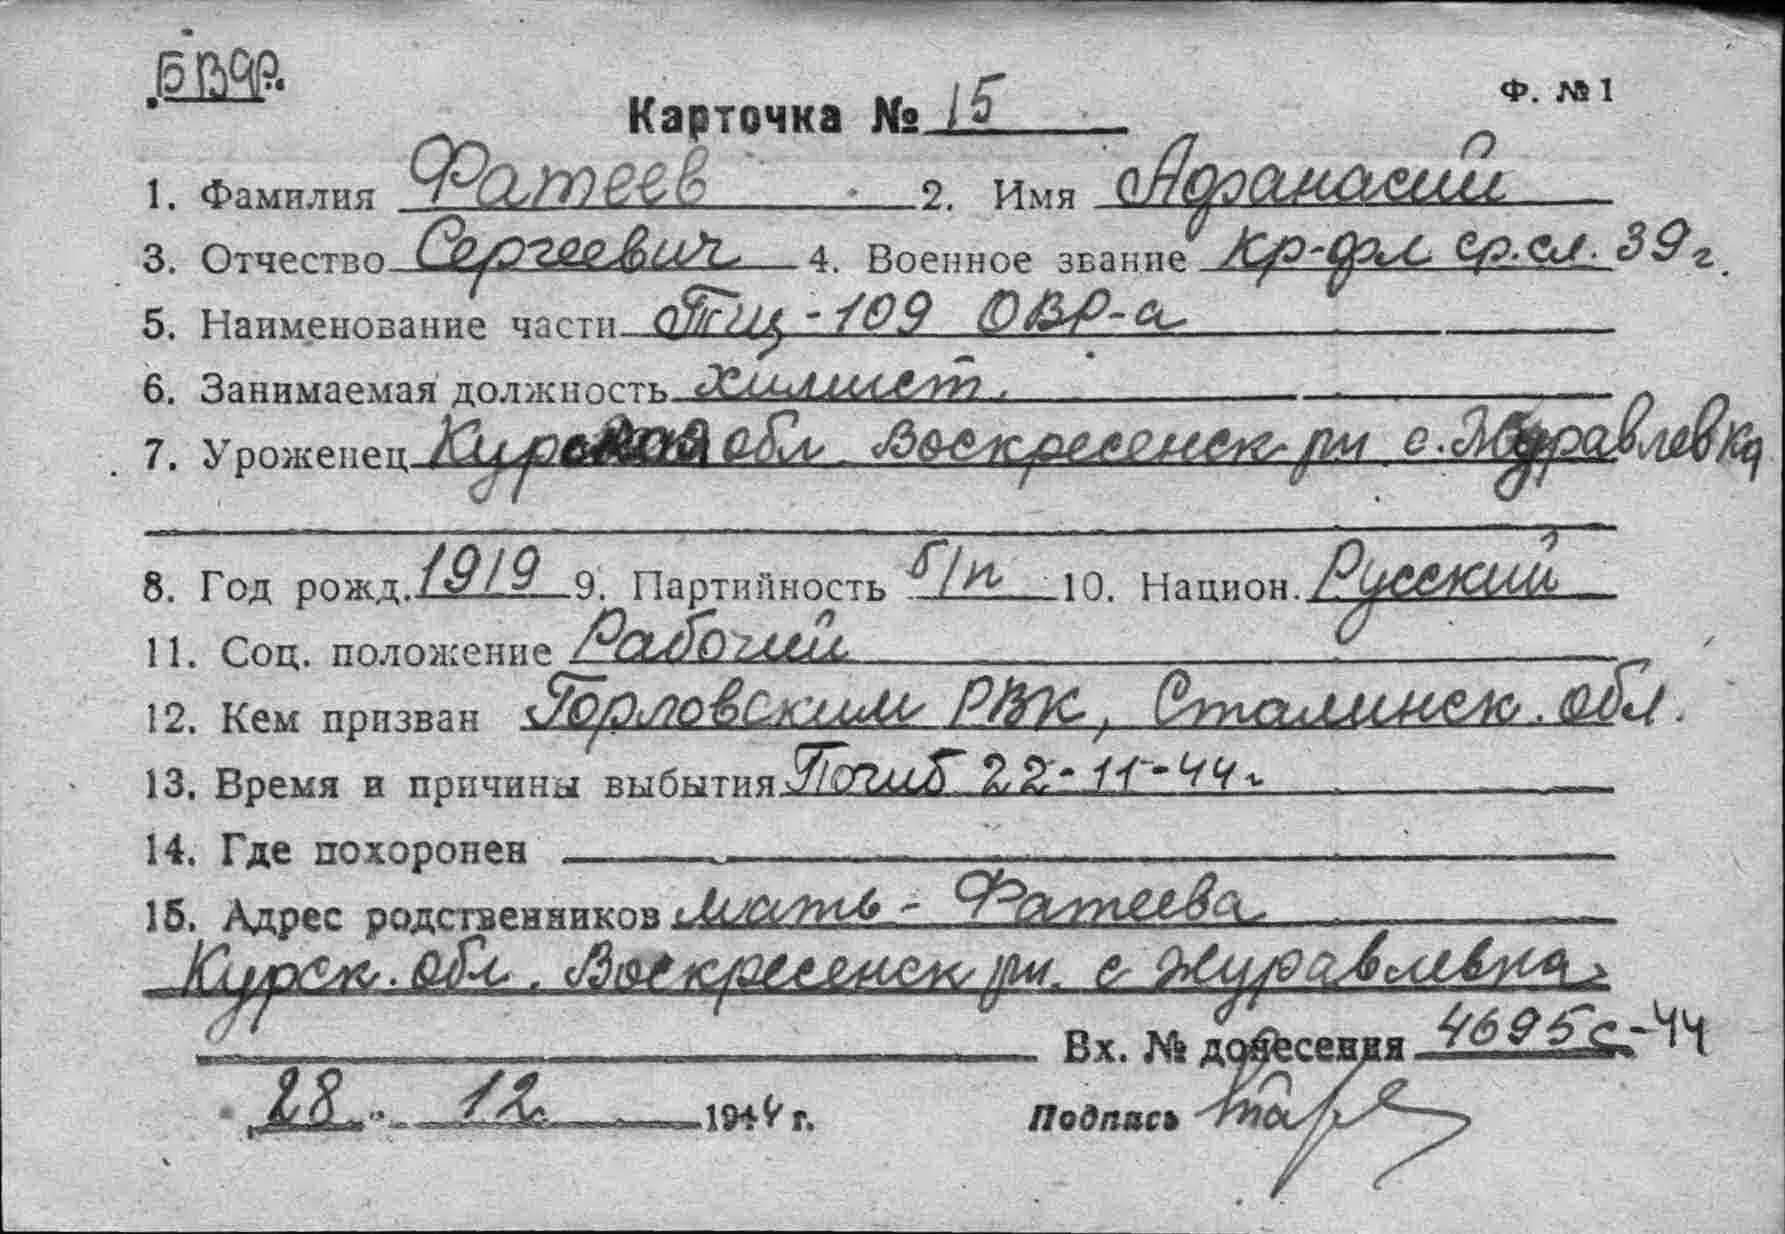 БВФ.
Ф. №1
Карточка № 15
1. Фамилия Фатеев 2. Имя Афанасий
3. Отчество Сергеевич 4. Военное звание кр-фл ср.сл. 39 г.
5. Наименование части ТЩ-109 ОВР-а
6. Занимаемая должность химист.
7. Уроженец Курская обл Воскресенск рн с. Журавлевка
8. Год рожд. 1919 9. Партийность б/п 10. Национ. Русский
11. Соц. положение Рабочий
12. Кем призван Горловским РВК, Сталинск. обл.
13. Время и причины выбытия Погиб 22-11-44г
14. Где похоронен
15. Адрес родственников мать - Фатеева
Курск. обл. Воскресенск рн. с Журавлевка
Вх. № донесения 4695с-44
28 12 1944 г. Подпись